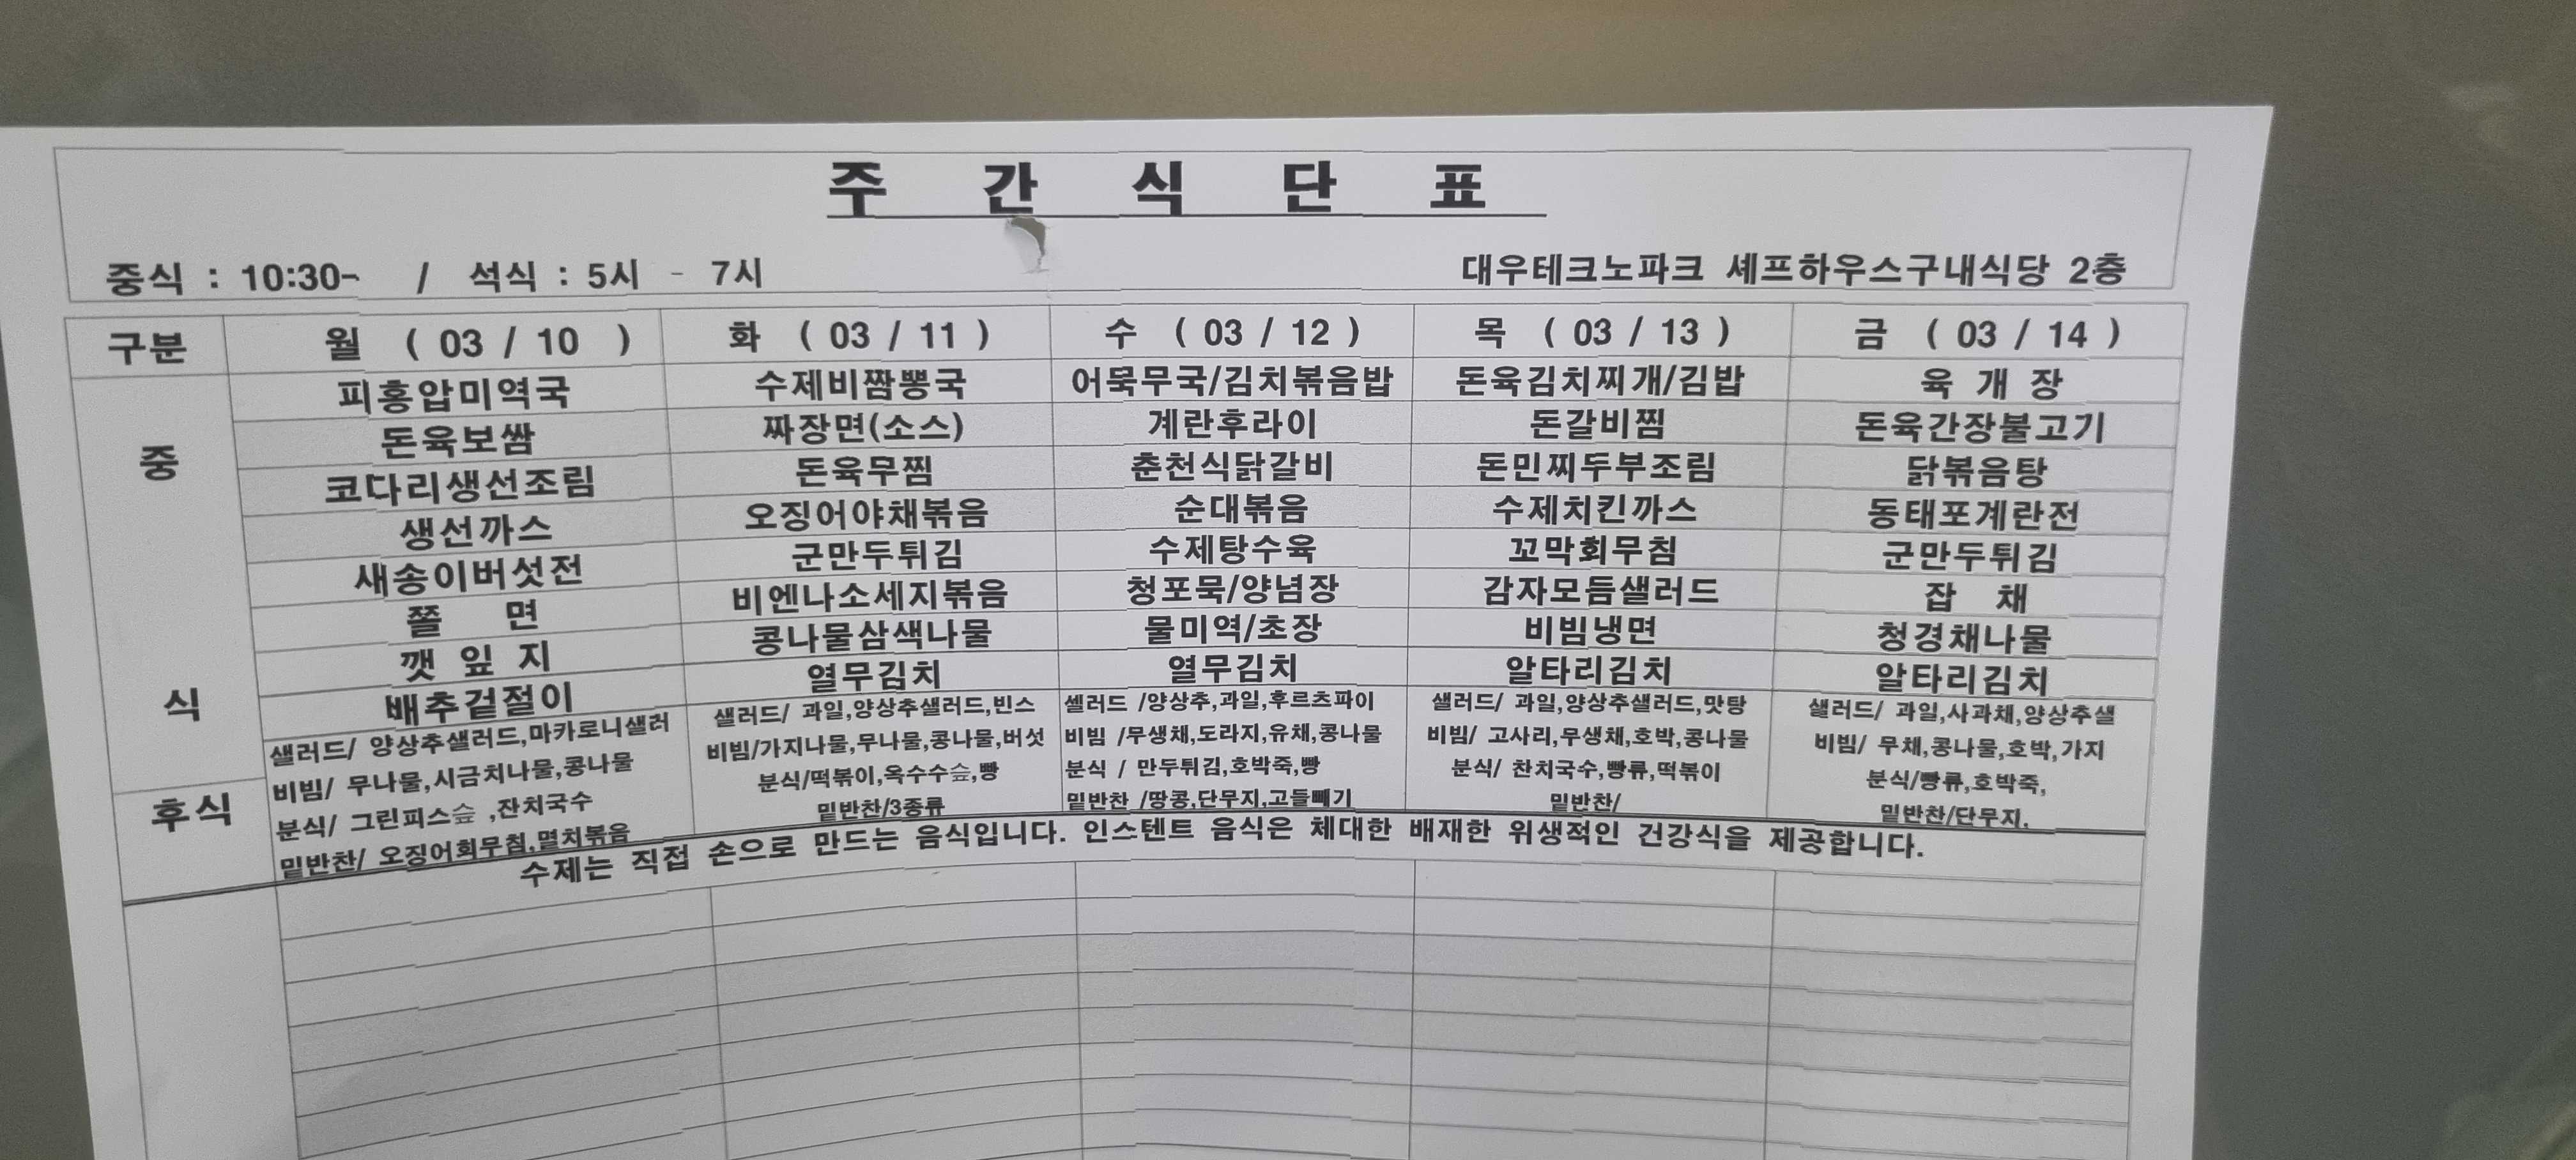 주 간 식 단 표
중식 : 10:30- / 석식 : 5시 - 7시
대우테크노파크 셰프하우스구내식당 2층
구분 월 ( 03 / 10 ) 화 ( 03 / 11 ) 수 ( 03 / 12 ) 목 ( 03 / 13 ) 금 ( 03 / 14 )
피홍압미역국 수제비짬뽕국 어묵무국/김치볶음밥 돈육김치찌개/김밥 육 개 장
돈육보쌈 짜장면(소스) 계란후라이 돈갈비찜 돈육간장불고기
중 코다리생선조림 돈육무찜 춘천식닭갈비 돈민찌두부조림 닭볶음탕
생선까스 오징어야채볶음 순대볶음 수제치킨까스 동태포계란전
새송이버섯전 군만두튀김 수제탕수육 꼬막회무침 군만두튀김
쫄 면 비엔나소세지볶음 청포묵/양념장 감자모듬샐러드 잡 채
깻 잎 지 콩나물삼색나물 물미역/초장 비빔냉면 청경채나물
식 배추겉절이 열무김치 열무김치 알타리김치 알타리김치
샐러드/ 양상추샐러드,마카로니샐러 샐러드/ 과일,양상추샐러드,빈스 셀러드 /양상추,과일,후르츠파이 샐러드/ 과일,양상추샐러드,맛탕 샐러드/ 과일,사과채,양상추샐
비빔/ 무나물,시금치나물,콩나물 비빔/가지나물,무나물,콩나물,버섯 비빔 /무생채,도라지,유채,콩나물 비빔/ 고사리,무생채,호박,콩나물 비빔/ 무채,콩나물,호박,가지
후식 분식/ 그린피스숲 ,잔치국수 분식/떡볶이,옥수수숲,빵 분식 / 만두튀김,호박죽,빵 분식/ 찬치국수,빵류,떡볶이 분식/빵류,호박죽,
밑반찬/ 오징어회무침,멸치볶음 밑반찬/3종류 밑반찬 /땅콩,단무지,고들빼기 밑반찬/ 밑반찬/단무지,
수제는 직접 손으로 만드는 음식입니다. 인스텐트 음식은 체대한 배재한 위생적인 건강식을 제공합니다.